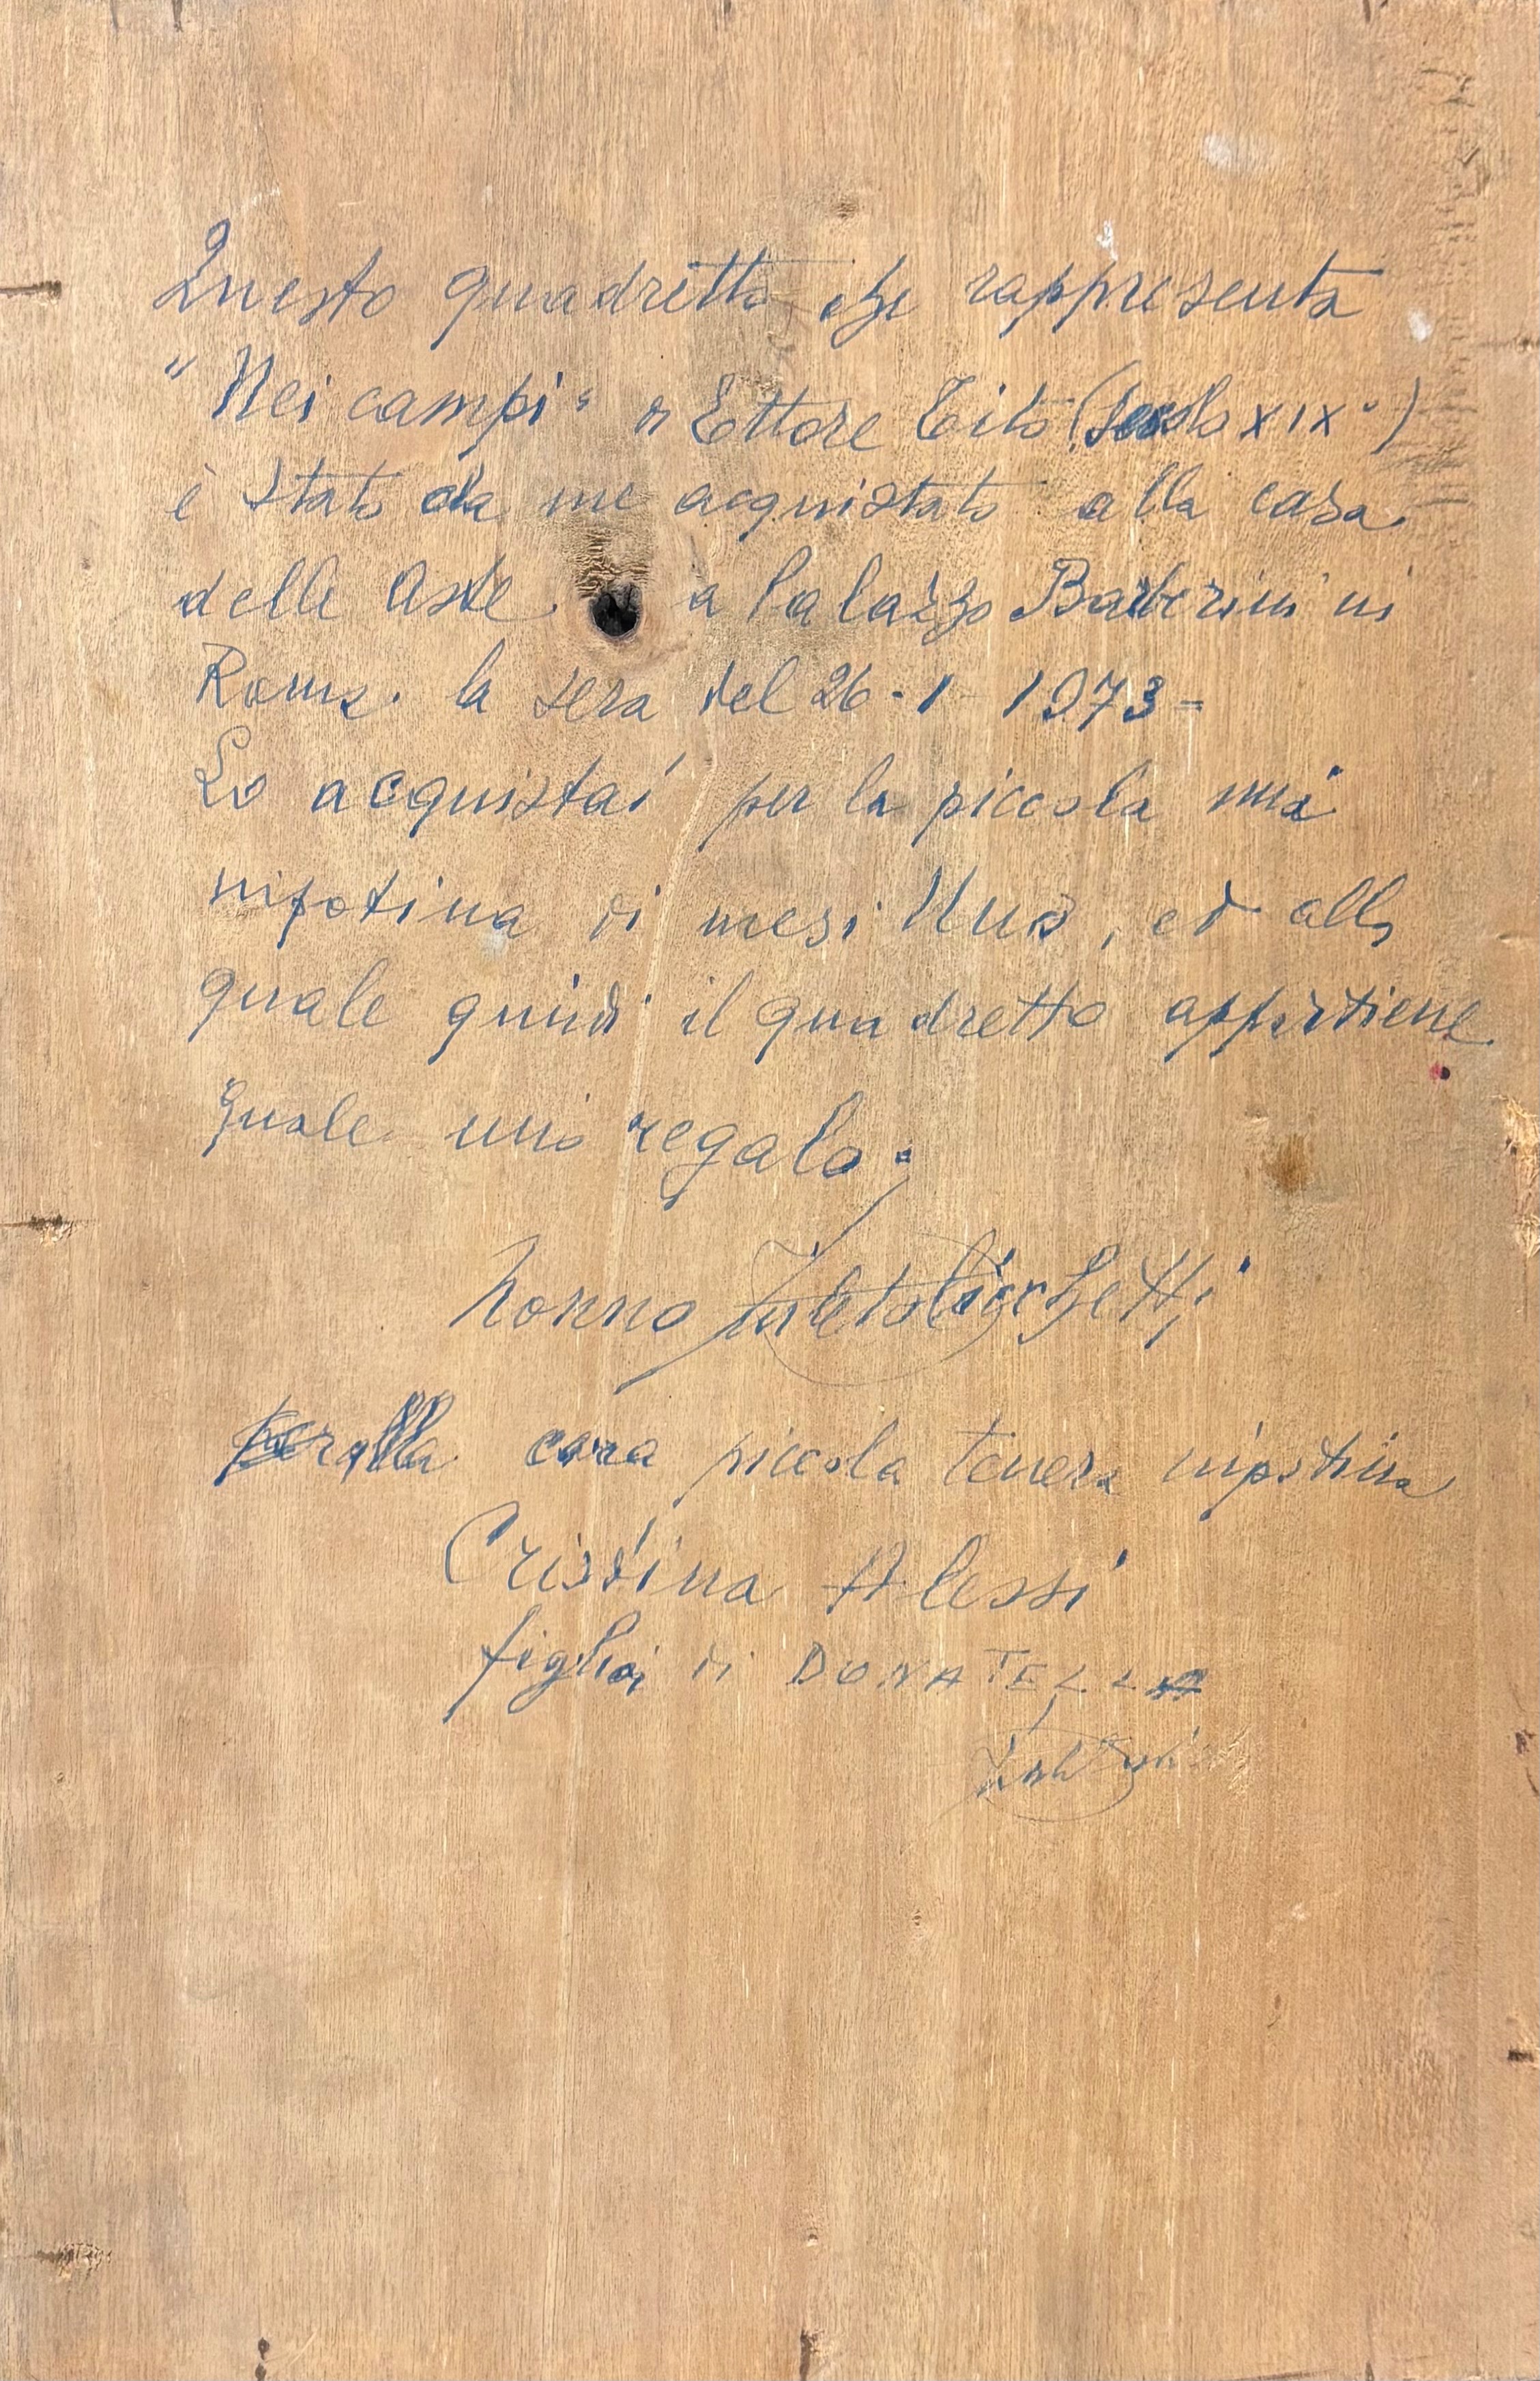 Questo quadretto che rappresenta
"Nei campi" di Ettore Tito (secolo XIX°)
è stato da me acquistato alla casa
delle Aste. a Palazzo Barberini in
Roma. la sera del 26-1-1973=
Lo acquistai per la piccola mia
nipotina di mesi Uno, ed alla
quale quindi il quadretto appartiene
quale mio regalo.
Nonno
alla cara piccola tenera nipotina
Cristina Alessi
figlia di DONATELLA